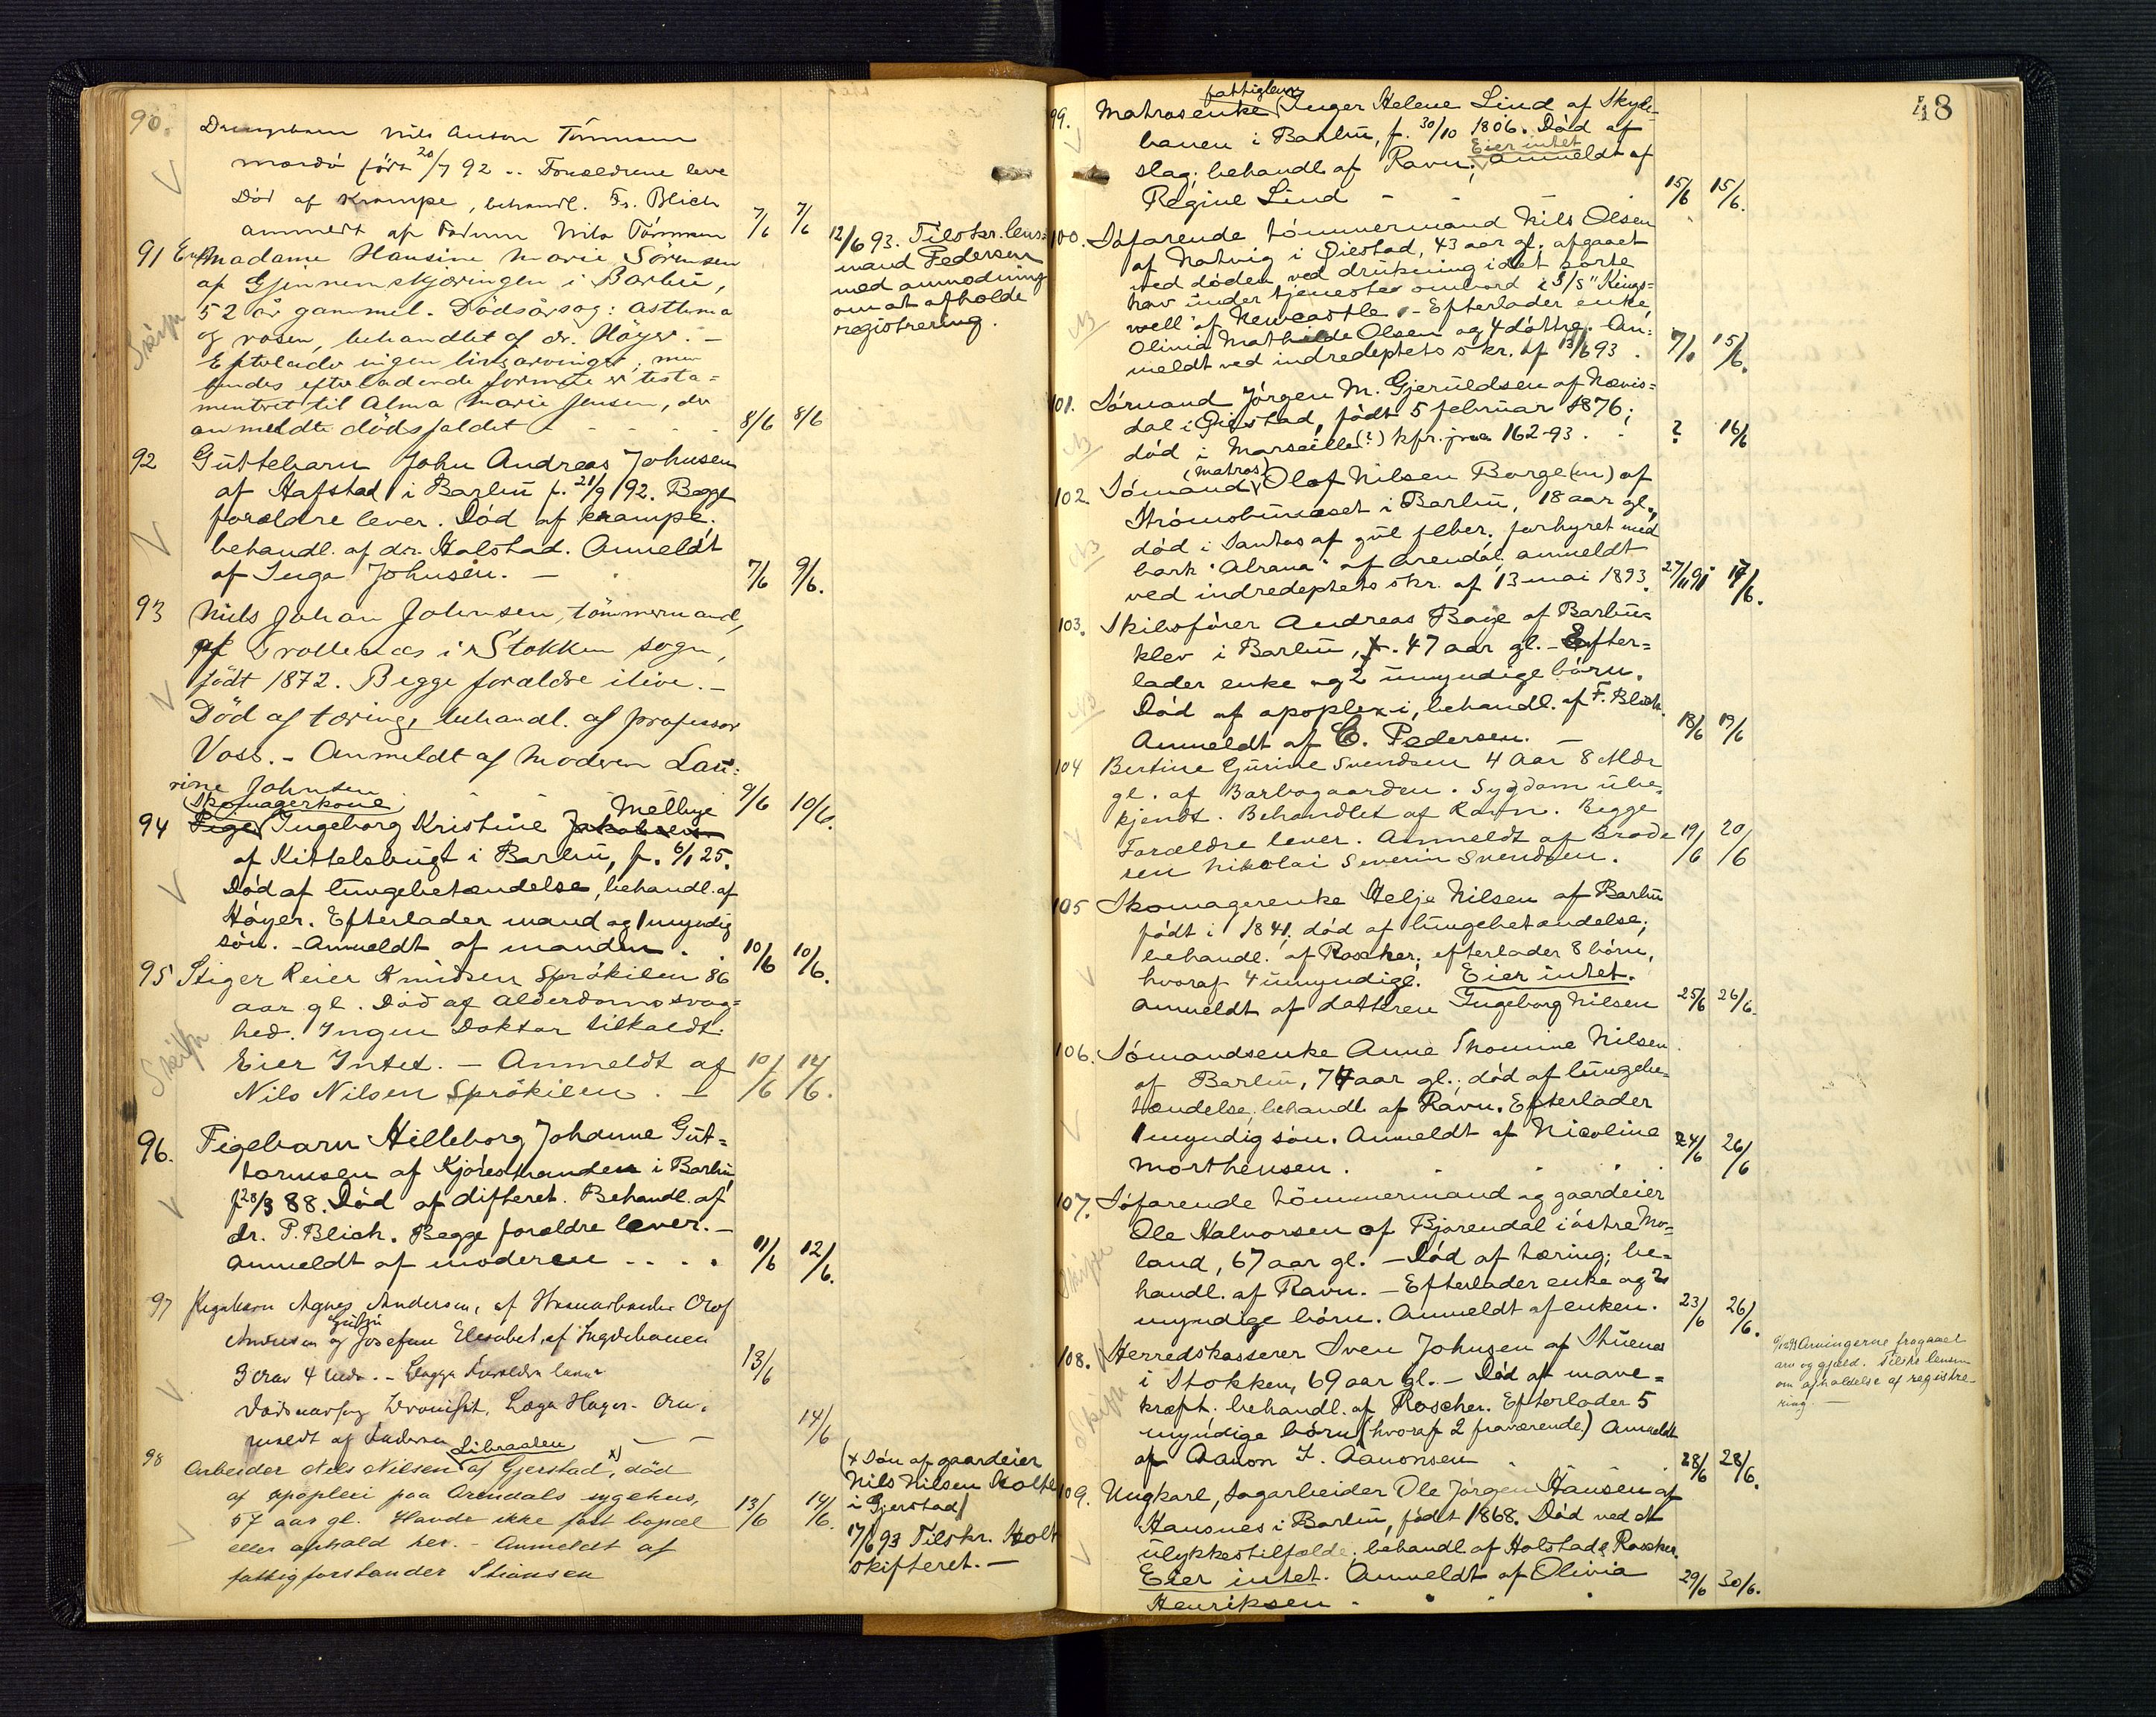 90. Drengebarn Nils Anton Tönnesen
Mordö född 20/7 92 .. Forældrene leve
Död af Krampe, behandl. Fr. Blich
anmeldt af Faderen Nils Tönnesen 7/6 7/6
91 Enke Madame Hansine Marie Sörensen
af Gjennemskjæringen i Barbu,
52 år gammel. Dödsårsag: Asthma
og rosen, behandlet af dr. Höyer. –
Efterlader ingen livsarvinger, men
hendes efterladende formue er testa=
menteret til Alma Marie Jensen, der
anmeldte dödsfaldet - - - - 8/6 8/6
Skifte
12/6 93. Tilskr. lens=
mand Pedersen
med anmodning
om at afholde
registrering.
92 Guttebarn John Andreas Johnsen
af Hafstad i Barbu f. 21/9 92. Begge
forældre lever. Död af krampe;
behandl. af dr. Holstad. Anmeldt
af Inga Johnsen. – 7/6 9/6.
93 Niels Johan Johnsen, tömmermand,
af Trollenæs i Stokken sogn,
födt 1872. Begge forældre ilive. –
Död af tæring, behandl. af professor
Voss. – Anmeldt af Moderen Lau=
rine Johnsen - - - 9/6 10/6.
Skomagerkone Melbye
94 Pige Ingeborg Kristine Jakobsen
af Kittelsbugt i Barbu, f. 6/1 25.
Död af lungebetændelse, behandl. af
Höyer. Efterlader mand og 1 myndig
sön. – Anmeldt af manden . . 10/6 10/6.
95 Stiger Reier Knudsen Språkilen 86
aar gl. Död af Alderdomssvag=
hed. Ingen Doktor tilkaldt.
Eier Intet. – Anmeldt af 10/6 14/6.
Nils Nilsen Språkilen. –
Skifte
96. Pigebarn Hilleborg Johanne Gut=
tormsen af Kjörestranden i Barbu,
f 28/3 88. Död af difterit. Behandl. af
dr. P. Blich. Begge forældre lever. –
Anmeldt af moderen . . . . 11/6 12/6.
97 Pigebarn Agnes Andersen, af Olaf
Andersen og Josefine Elisabet, af Ingdebauen
3 Aar 4 Mdr. – Begge Forældre lever 13/6
Dödsaarsag Bronchit. Læge Höyer. An=
meldt af Faderen – – 14/6
Libraalen
98 Arbeider Nils Nilsen af Gjerstad, x) död
af apoplexi paa Arendals sygehus,
57 aar gl. Havde ikke fast bopæl 13/6 14/6.
eller ophold her. – Anmeldt af
fattigforstander Stiansen
(x Sön af gaardeier
Nils Nilsen Holte
i Gjerstad)
17/6 93 Tilskr. Holt
skifteret. –
48
fattiglem
99. Matrosenke Inger Helene Lind af Skyde=
banen i Barbu, f. 30/10 1806. Död af
Eier intet
slag; behandl. af Ravn; Anmeldt af
Regine Lind - - - 15/6 15/6.
100. Söfarende tömmermand Nils Olsen
af Natvig i Öiestad, 43 aar gl. afgaaet
ved döden ved drukning i det sorte
hav under tjeneste ombord i S/S "Kings=
well" af Newcastle. – Efterlader enke
Olivia Mathilde Olsen og 4 döttre. An=
meldt ved indredeptets skr. af 13/6 93. 15/6.
NB
101. Sömand Jörgen M. Gjeruldsen af Nævis=
dal i Öiestad, födt 5 februar 1876;
död i Marseille (?) kfr. jrnr 162-93. . ? 16/6
NB
(matros)
102 Sömand Olaf Nilsen Borge(n) af
Strömsbunæset i Barbu, 18 aar gl.,
död i Santos af gul feber, forhyret med
bark "Alrana" af Arendal; anmeldt
ved indredeptets skr. af 13 mai 1893. 27/11 91 17/6.
NB
103. Skibsförer Andreas Boye af Barbu=
klev i Barbu, 47 aar gl. – Efter=
lader enke og 2 umyndige börn.
Död af apoplexi, behandl. af F. Blich.
Anmeldt af C. Pedersen. – 18/6 19/6
NB
104 Bertine Gurine Svendsen 4 Aar 8 Mdr
gl. af Barbogaarden. Sygdom ube=
kjendt. Behandlet af Ravn. Begge
Forældre lever. Anmeldt af Brode 19/6 20/6
ren Nikolai Severin Svendsen.
105 Skomagerenke Helje Nilsen af Barbu
födt i 1841. död af lungebetændelse;
behandl. af Roscher; efterlader 8 börn,
hvoraf 4 umyndige. Eier intet.
Anmeldt af datteren Ingeborg Nilsen 25/6 26/6.
106. Sömandsenke Anne Thomine Nilsen
af Barbu, 74 aar gl.; död af lungebe=
tændelse; behandl. af Ravn. Efterlader
1 myndig sön. Anmeldt af Nicoline
Morthensen. . . . 24/6 26/6
107. Söfarende tömmermand og gaardeier
Ole Halvorsen af Bjorendal i östre Mo=
land, 67 aar gl. – Död af tæring; be=
handl. af Ravn. – Efterlader enke og 2
myndige börn. Anmeldt af enken. 23/6 26/6.
Skifte
108. Herredskasserer Sven Johnsen af Stuenes
i Stokken, 69 aar gl. – Död af mave=
kræft. behandl. af Roscher. Efterlader 5
myndige börn (hvoraf 2 fraværende) Anmeldt
af Aanon T. Aanonsen . 28/6 28/6.
Skifte
Arvingerne fragaaet
arv og gjæld. Tilskr. lensm.
om afholdelse af registre=
ring. –
109. Ungkarl, sagarbeider Ole Jörgen Hansen af
Hausnes i Barbu, födt 1868. Död ved et
ulykkestilfælde; behandl. af Holstad & Roscher.
Eier intet. Anmeldt af Olivia
Henriksen . . . 29/6 30/6.